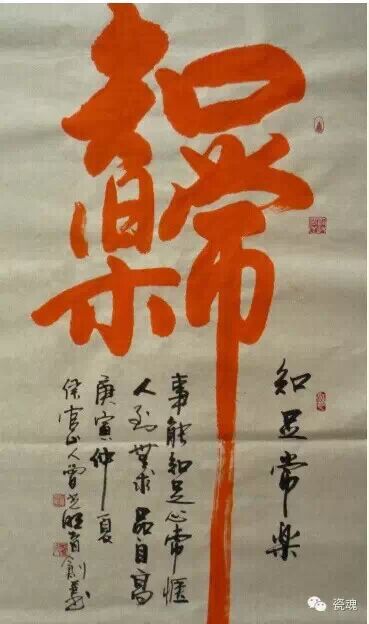 知足常樂
知足常樂
事能知足心常惬
人到無求品自高
庚寅仲夏
山人曾
瓷魂